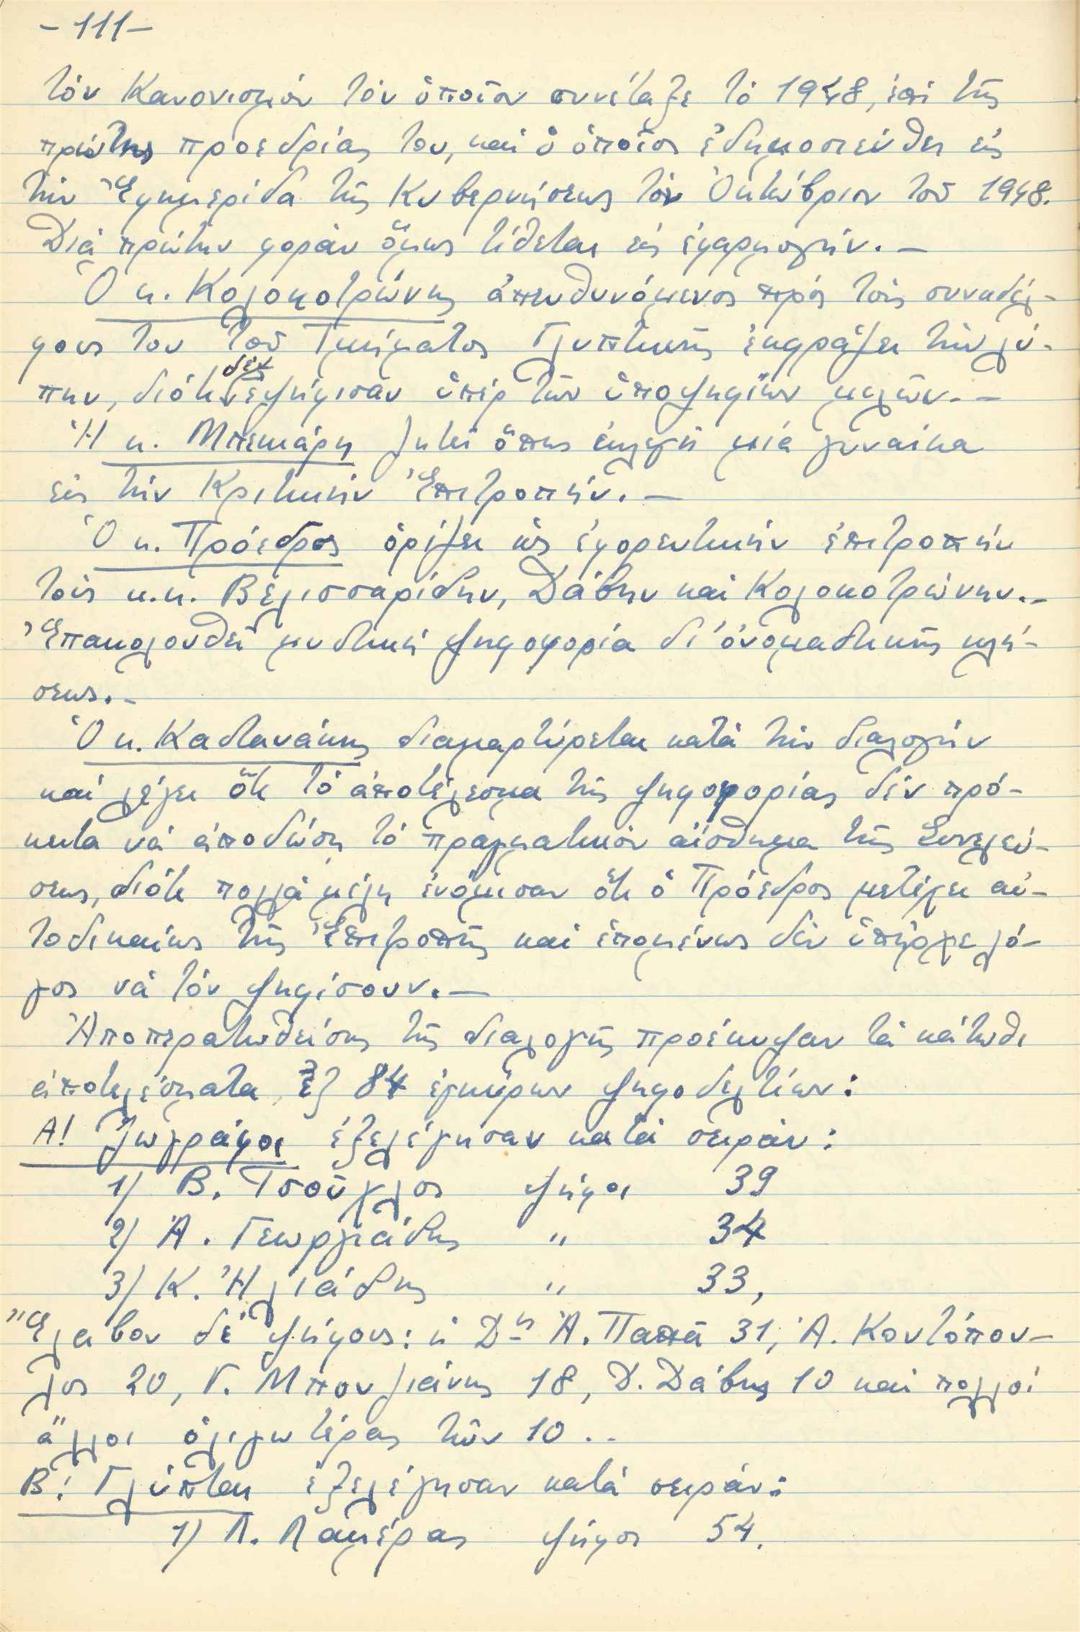 -111-
τόν Κανονισμόν τόν ὁποῖον συνέταξε τό 1948, ἐπί τῆς
πρώτης προεδρίας του, καί ὁ ὁποῖος ἐδημοσιεύθη εἰς
τήν Ἐφημερίδα τῆς Κυβερνήσεως τόν Ὀκτώβριον τοῦ 1948.
Διά πρώτην φοράν ὅμως τίθεται εἰς ἐφαρμογήν.-
Ὁ κ. Κολοκοτρώνης ἀπευθυνόμενος πρός τούς συναδέλ-
φους του τοῦ Τμήματος Γλυπτικῆς ἐκφράζει τήν λύ-
πην, διότι δέν ἐψήφισαν ὑπέρ τῶν ὑποψηφίων μελῶν.-
Ἡ κ. Μπεκιάρη ζητεῖ ὅπως ἐκλεγῇ μιά γυναίκα
εἰς τήν Κριτικήν Ἐπιτροπήν.-
Ὁ κ. Πρόεδρος ὁρίζει ὡς ἐφορευτικήν ἐπιτροπήν
τούς κ.κ. Βελισσαρίδην, Δάβην καί Κολοκοτρώνην.-
Ἐπακολουθεῖ μυστική ψηφοφορία δι' ὀνομαστικῆς κλή-
σεως.-
Ὁ κ. Καστανάκης διαμαρτύρεται κατά τήν διαλογήν
καί λέγει ὅτι τό ἀποτέλεσμα τῆς ψηφοφορίας δέν πρό-
κειται νά ἀποδώσῃ τό πραγματικόν αἴσθημα τῆς Συνελεύ-
σεως, διότι πολλά μέλη ἐνόμισαν ὅτι ὁ Πρόεδρος μετέχει αὐ-
τοδικαίως τῆς Ἐπιτροπῆς καί ἑπομένως δέν ὑπῆρχε λό-
γος νά τόν ψηφίσουν.-
Ἀποπερατωθείσης τῆς διαλογῆς προέκυψαν τά κάτωθι
ἀποτελέσματα ἐξ 84 ἐγκύρων ψηφοδελτίων:
Α! Ζωγράφοι ἐξελέγησαν κατά σειράν:
1) Β. Τσούχλος ψήφοι 39
2) Ἀ. Γεωργιάδης " 34
3) Κ. Ἠλιάδης " 33,
Ἔλαβον δέ ψήφους: ἡ Δὶς Ἀ. Παππᾶ 31, Ἀ. Κοντόπου-
λος 20, Γ. Μπουζιάνης 18, Δ. Δάβης 10 καί πολλοί
ἄλλοι ὀλιγωτέρας τῶν 10..
Β! Γλύπται ἐξελέγησαν κατά σειράν:
1) Λ. Λαμέρας ψήφοι 54.